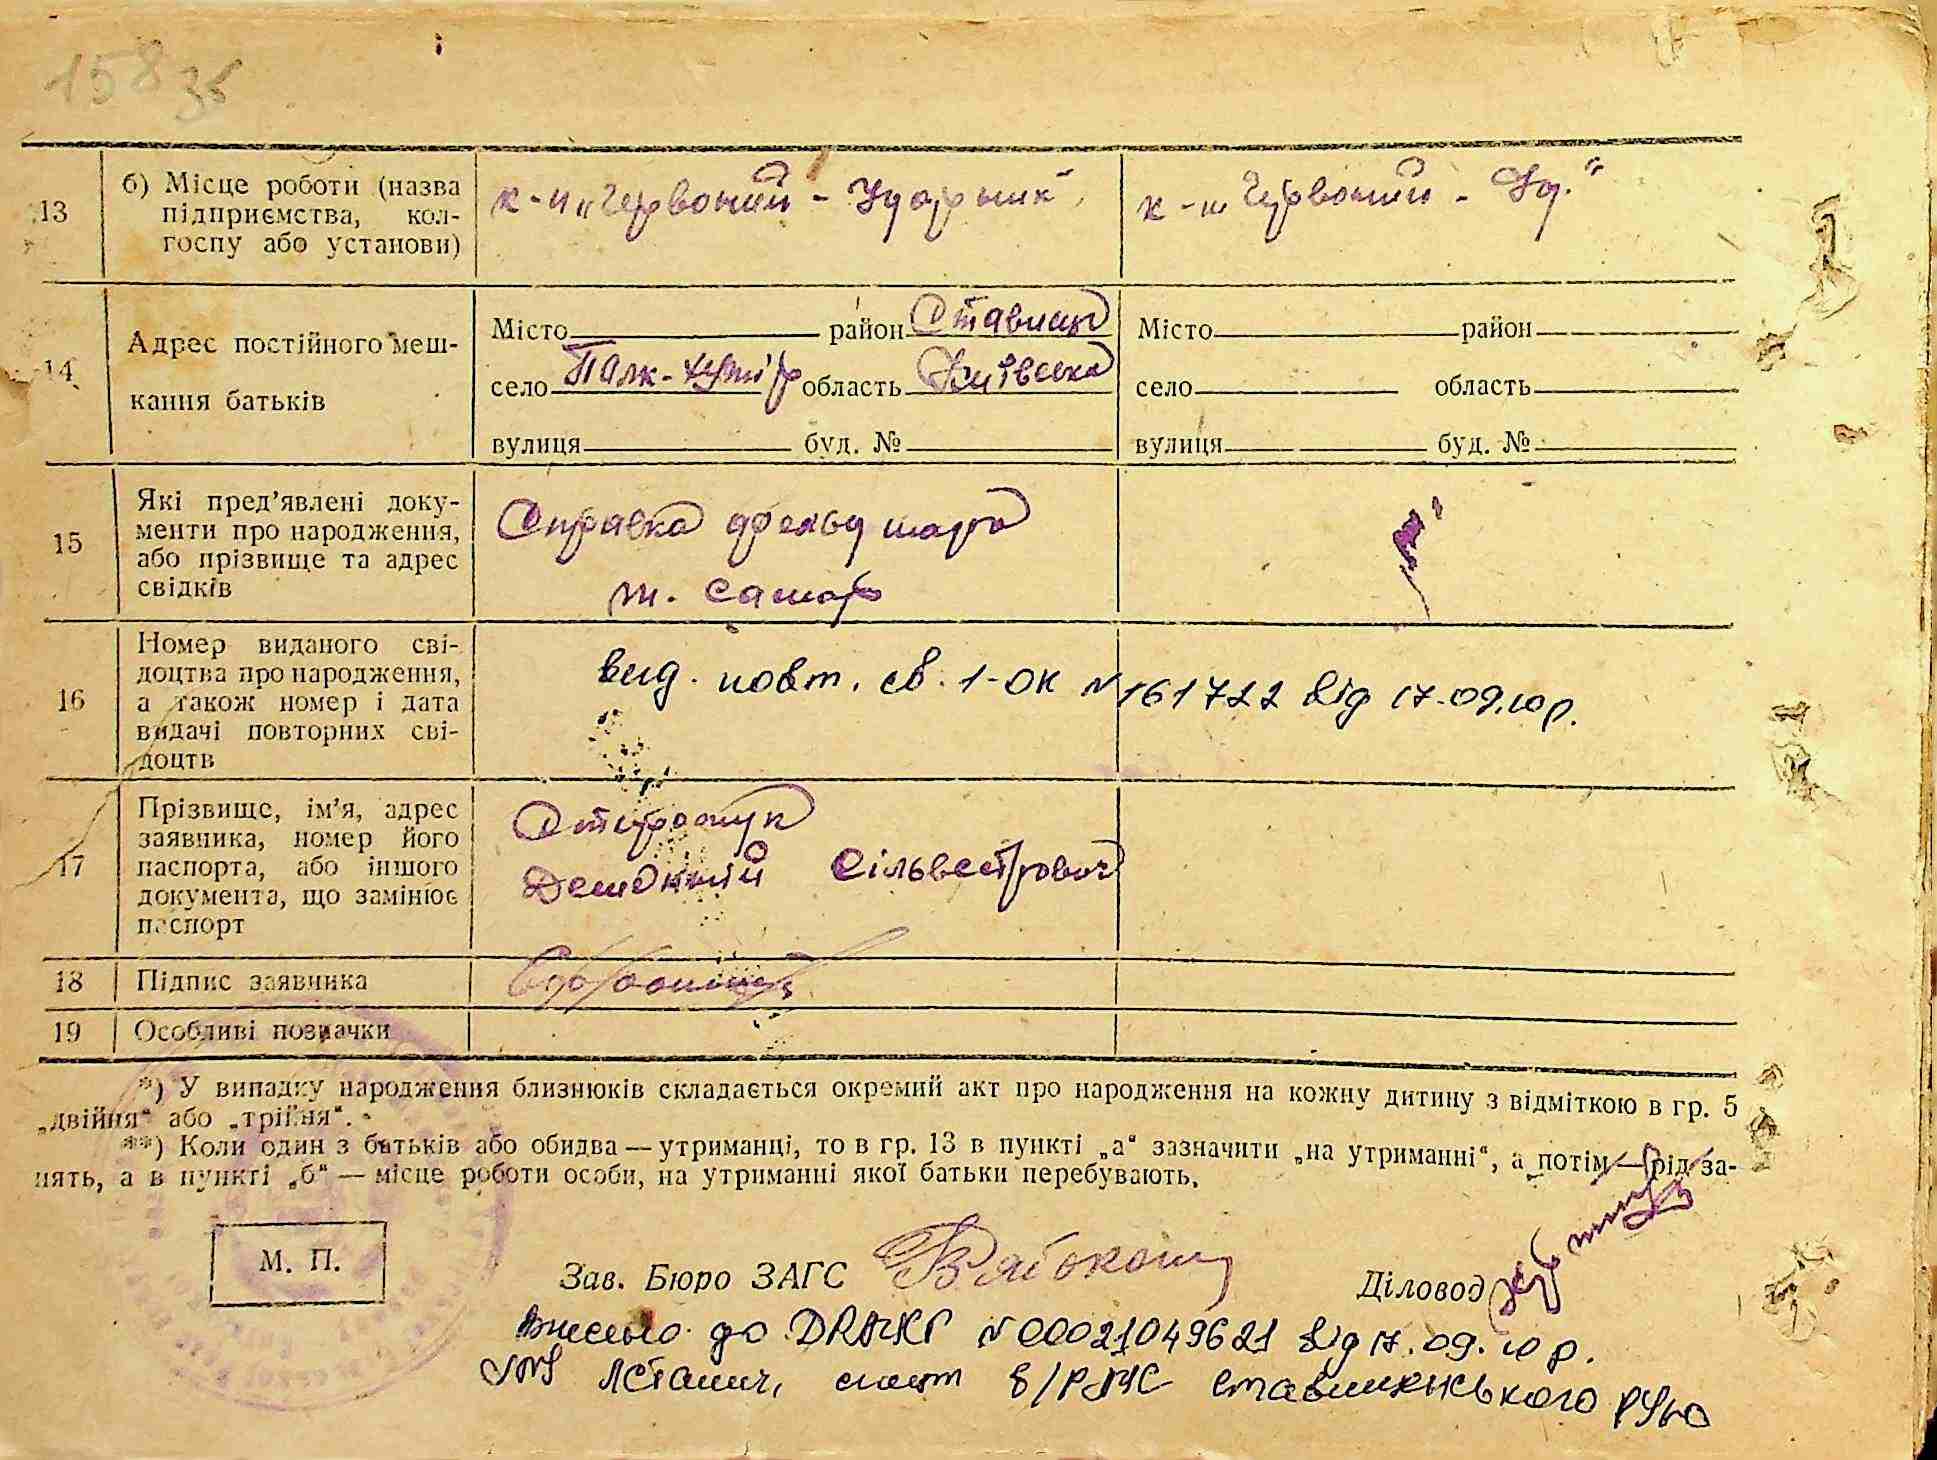 158 35
13
б) Місце роботи (назва
підприємства, кол-
госпу або установи)
к-п „Червоний - Ударник"
к-п Червоний - Уд."
14
Адрес постійного меш-
кання батьків
Місто район Ставищ
село Палк-хутір область Київська
вулиця буд. №
Місто район
село область
вулиця буд. №
15
Які пред'явлені доку-
менти про народження,
або прізвище та адрес
свідків
Справка фельдшара
16
Номер виданого сві-
доцтва про народження,
а також номер і дата
видачі повторних сві-
доцтв
вид. повт. св. 1-ОК №161722 від 17.09.10р.
17
Прізвище, ім'я, адрес
заявника, номер його
паспорта, або іншого
документа, що замінює
паспорт
Сільвестрович
18
Підпис заявника
19
Особливі позначки
*) У випадку народження близнюків складається окремий акт про народження на кожну дитину з відміткою в гр. 5
„двійня" або „трійня".
**) Коли один з батьків або обидва — утриманці, то в гр. 13 в пункті „а" зазначити „на утриманні", а потім — рід за-
нять, а в пункті „б" — місце роботи особи, на утриманні якої батьки перебувають.
М. П.
Зав. Бюро ЗАГС
Діловод
внесено до ДРАЦСГ №00021049621 від 17.09.10 р.
спец в/РАЦС Ставищенського РУЮ